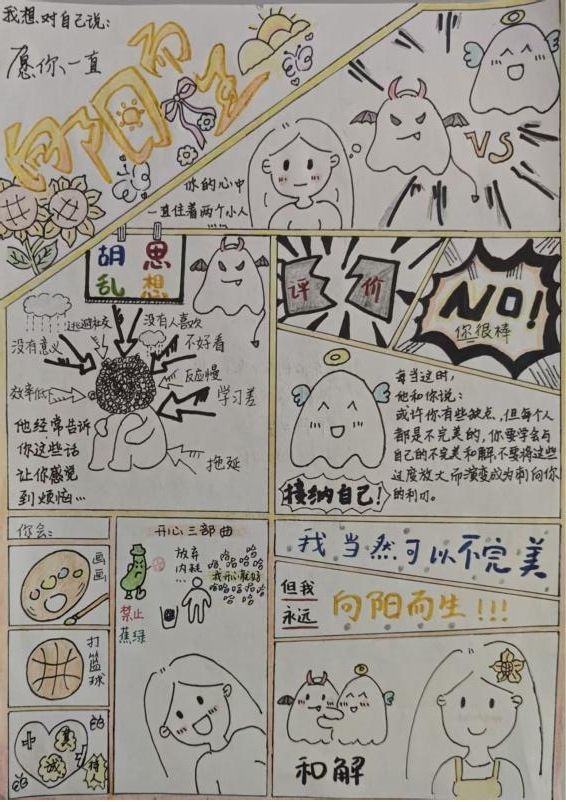 我想对自己说:
愿你、一直
向阳而生
VS
你的心中
一直住着两个小人
……
胡思
乱想
逃避社交
没有人喜欢
没有意义
不好看
反应慢
效率低
学习差
拖延
他经常告诉
你这些话
让你感觉
到烦恼…
评价
NO!
你很棒
每当这时,
他和你说:
或许你有些缺点,但每个人
都是不完美的,你要学会与
自己的不完美和解,不要将这些
过度放大而演变成为刺向你
的利刃。
接纳自己!
你会:
画画
打篮球
真诚
待人
开心三部曲
放弃
内耗
…
禁止
蕉绿
哈哈哈哈
我开心就好
哈哈哈哈
我当然可以不完美
但我
永远
向阳而生!!!
和解